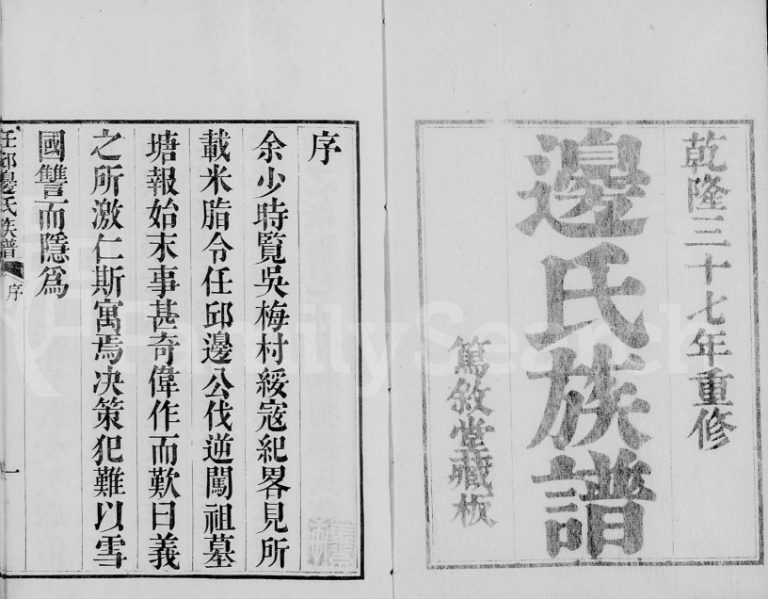 乾隆三十七年重修
邊氏族譜
篤敘堂藏板
序
余少時覧吳梅村綏寇紀畧見所
載米脂令任邱邊公伐逆闖祖墓
塘報始末事甚奇偉作而歎曰義
之所激仁斯寓焉决策犯難以雪
國讐而隱爲
任邱邊氏族譜 序 一
FamilySearch